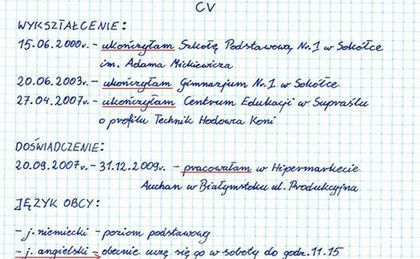 CV
WYKSZTAŁCENIE:
15.06.2000r. - ukończyłam Szkołę Podstawową Nr.1 w Sokółce
im. Adama Mickiewicza
20.06.2003r. - ukończyłam Gimnazjum Nr.1 w Sokółce
27.04.2007r. - ukończyłam Centrum Edukacji w Supraślu
o profilu Technik Hodowca Koni
DOŚWIADCZENIE:
20.09.2007r. - 31.12.2009r. - pracowałam w Hipermarkecie
Auchan w Białymstoku ul. Produkcyjna
JĘZYK OBCY:
- j. niemiecki - poziom podstawowy
- j. angielski - obecnie uczę się go w soboty do godz. 11.15